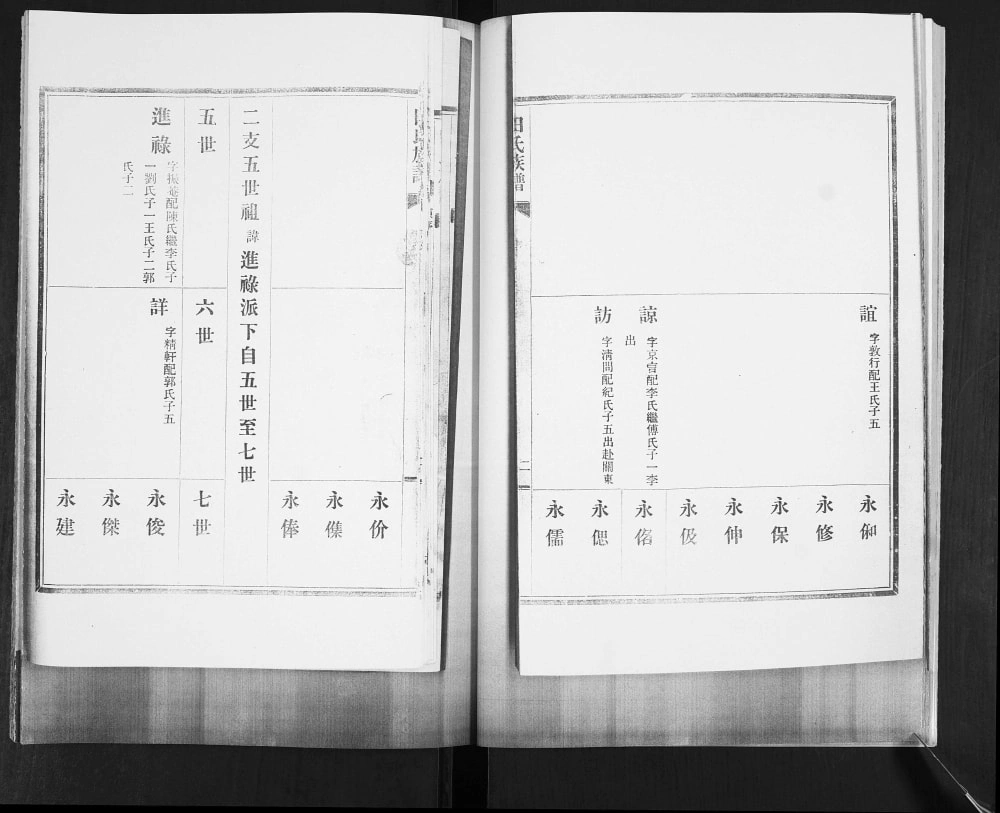 田氏族譜
誼
字敦行配王氏子五
諒
字京官配李氏繼傅氏子一李
出
訪
字清問配紀氏子五出赴關東
永和
永修
永保
永伸
永伋
永偺
永偲
永儒
二
永价
永僕
永俸
二支五世祖諱進祿派下自五世至七世
五世
六世
七世
進祿
字振莚配陳氏繼李氏子
一劉氏子一王氏子二郭
氏子二
詳
字精軒配郭氏子五
永俊
永傑
永建